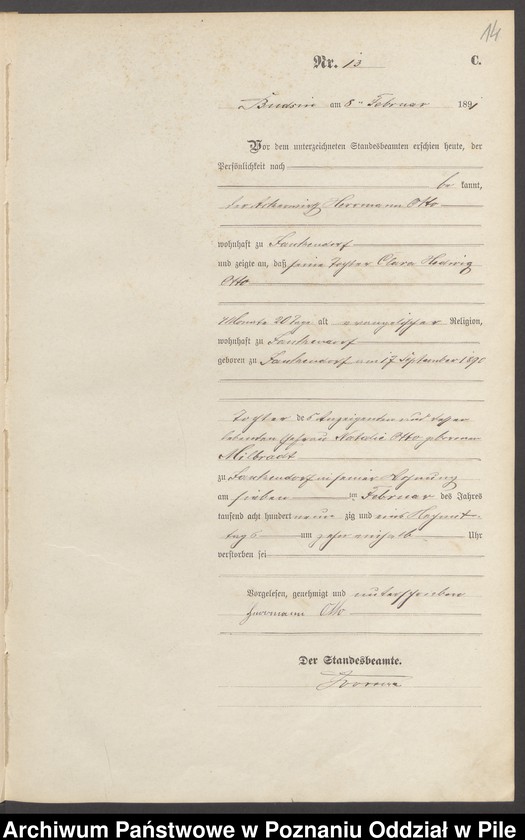 14
Nr. 13 C.
Budsin am 8ten Februar 1891
Vor dem unterzeichneten Standesbeamten erschien heute, der
Persönlichkeit nach
be kannt,
der Ackerwirth Herrmann Otto
wohnhaft zu Jankendorf
und zeigte an, daß seine Tochter Clara Hedwig
Otto
4 Monate 20 Tage alt evangelischer Religion,
wohnhaft zu Jankendorf
geboren zu Jankendorf am 17 September 1890
Tochter des Anzeigenden und dessen
lebenden Ehefrau Natalie Otto geborenen
Milbradt
zu Jankendorf in seiner Wohnung
am sieben ten Februar des Jahres
tausend acht hundert neun zig und eins Vormit-
tags um zehn einhalb Uhr
verstorben sei
Vorgelesen, genehmigt und unterschrieben
Herrmann Otto
Der Standesbeamte.
Archiwum Państwowe w Poznaniu Oddział w Pile